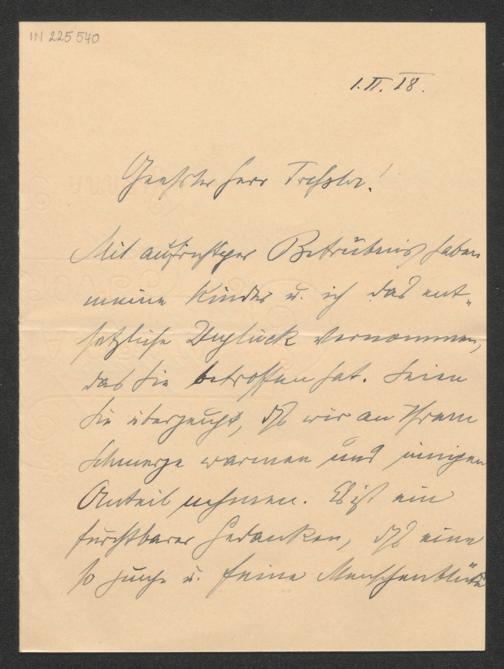 IN 225540
1. II. 18.
Geehrter Herr Treßler!
Mit aufrichtiger Betrübnis haben
meine Kinder u. ich das ent-
setzliche Unglück vernommen,
das Sie betroffen hat. Seien
Sie überzeugt, dß wir an Ihrem
Schmerze warmen und innigen
Anteil nehmen. Es ist ein
furchtbarer Gedanken, dß eine
so junge u. feine Menschenblüte